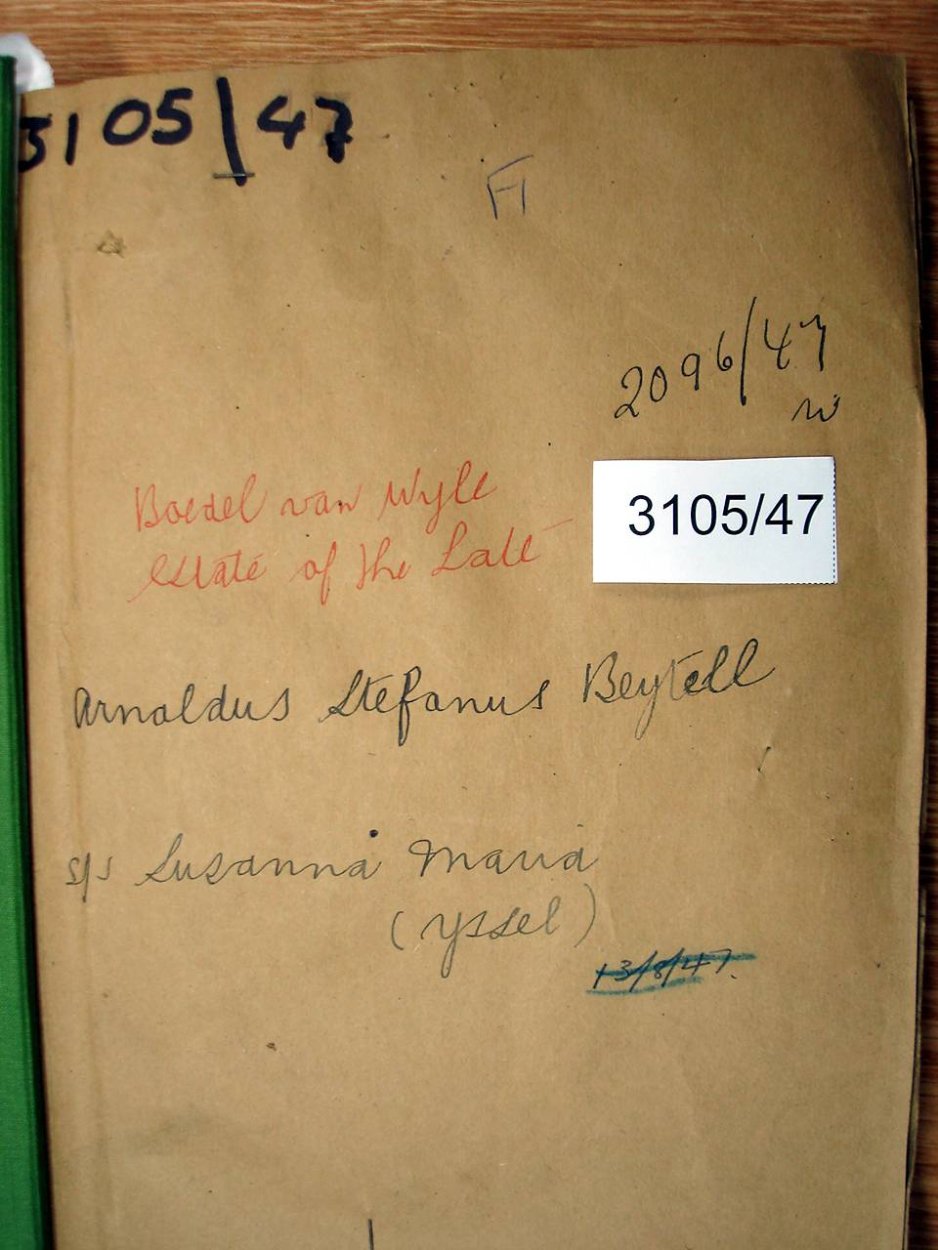 3105/47
2096/47
3105/47
Boedel van Wyle
Estate of the Late
Arnoldus Stefanus Beytell
s/s Susanna Maria
(Yssel)
13/8/47.